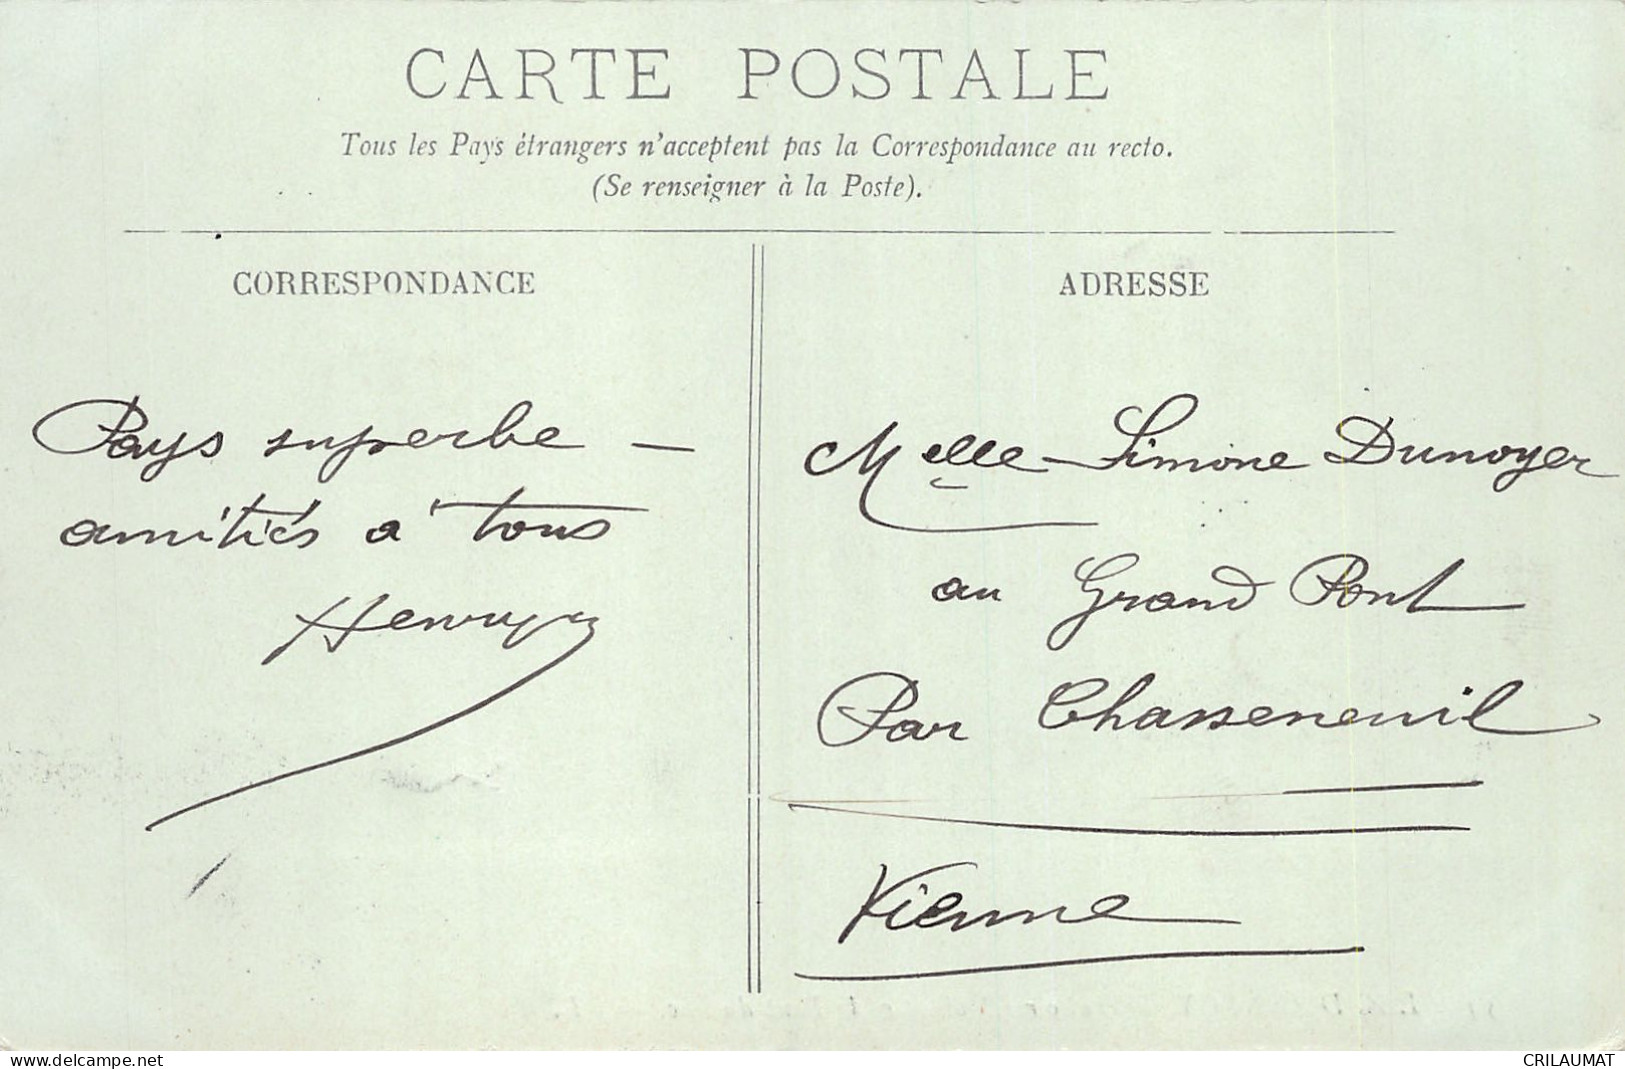 CARTE POSTALE
Tous les Pays étrangers n'acceptent pas la Correspondance au recto.
(Se renseigner à la Poste).
CORRESPONDANCE
Pays superbe —
amitiés à tous
ADRESSE
Melle Simone Dunoyer
au Grand Pont
Par Chasseneuil
Vienne
www.delcampe.net
CRILAUMAT